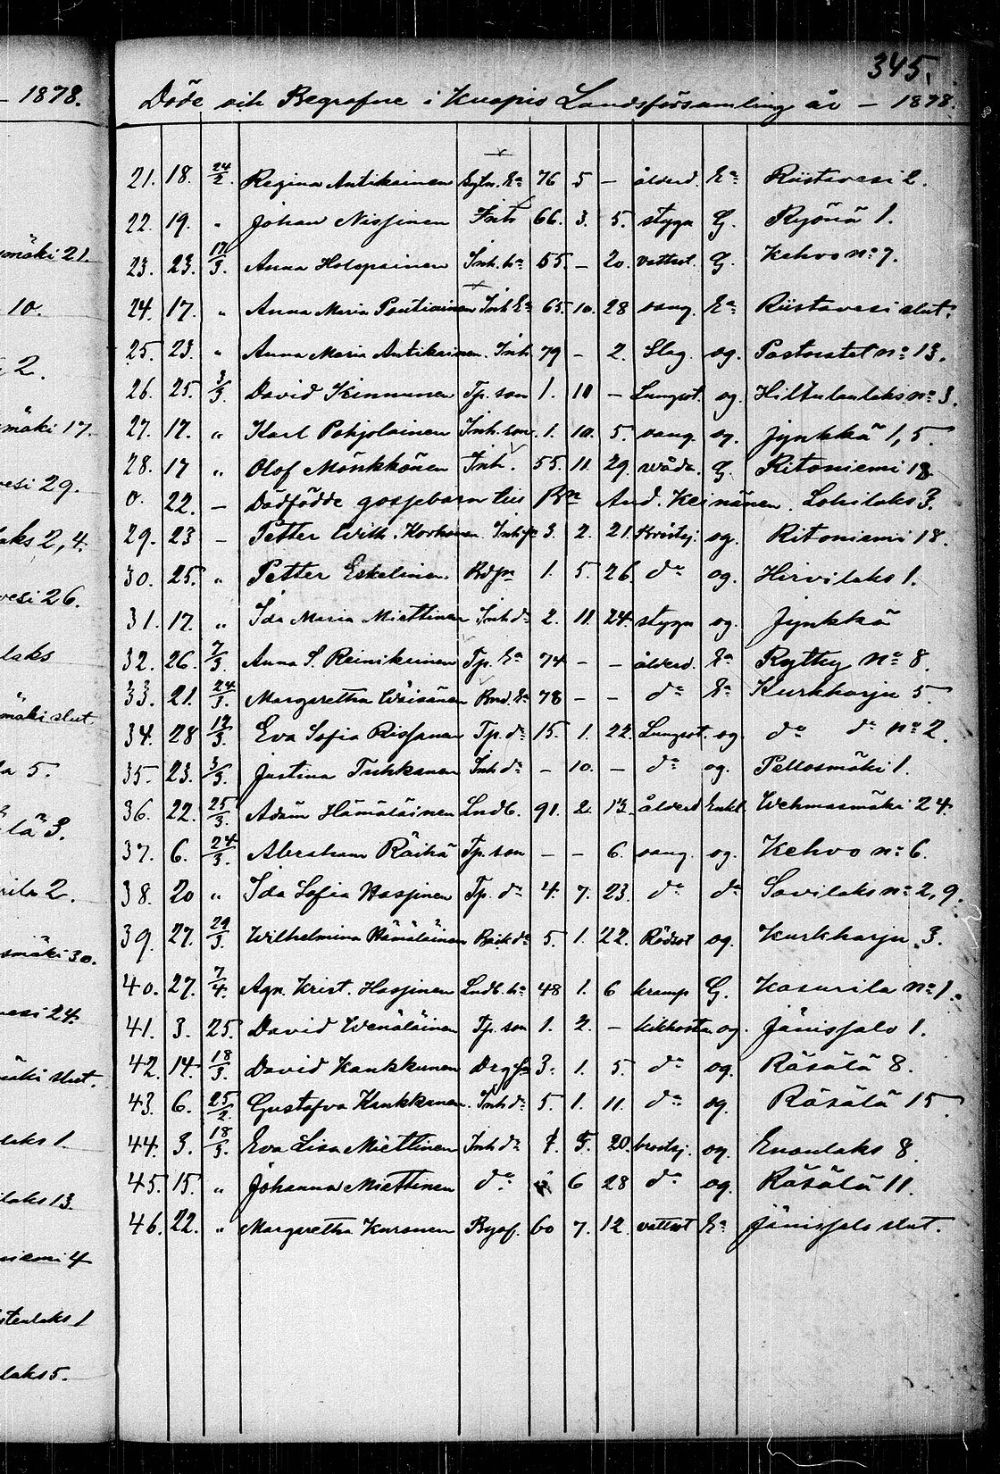 345.
— 1878.
Döde och Begrafne i Kuopio Landsförsamling år — 1878.
21. 18. 24/2. Regina Antikainen Eₐ 76 5 — ålderd. Eₐ Riistavesi 2.
22. 19. " Johan Nissinen Inh 66. 3. 5. stygn G. Ryönä 1.
23. 23. 17/3. Anna Holopainen Inh. h 55. — 20. vattsot. G. Kehvo nº 7.
24. 17. " Anna Maria Pentikäinen Inh Eₐ 65. 10. 28 svag. Eₐ Riistavesi slut.
25. 23. " Anna Maria Antikainen. Inh. 79 — 2. Slag. og. Pastorstet nº 13.
26. 25. 3/3. David Kinnunen Tp. son 1. 10 — Lungsot. og. Hiltulanlaks nº 3.
27. 17. " Karl Pohjolainen Inh. son. 1. 10. 5. svag. og. Jynkkä 1, 5.
28. 17 " Olof Mönkkönen Inh. 55. 11. 29. våda. G. Ritoniemi 18.
0. 22. — Dödfödde gossebarn till Bn And. Keinänen. Lohilaks 3.
29. 23 — Petter Wilh. Korhonen. Inh. 3. 2. 21. Bröstsj. og. Ritoniemi 18.
30. 25. " Petter Eskelinen. 1. 5. 26. dº og. Hirvilaks 1.
31. 17. " Ida Maria Miettinen Inh dr 2. 11. 24. stygn og. Jynkkä
32. 26. 7/3. Anna S. Reinikainen Tp. Eₐ 74 — — ålderd. Eₐ Rytky Nº 8.
33. 21. 24/3. Margaretha Väisänen Bnd. Eₐ 78 — — dº Eₐ Kurkharju 5
34. 28 17/3. Eva Sofia Rissanen Tp. dr 15. 1. 22. Lungsot. og. dº dº nº 2.
35. 23. 3/3. Justina Tuhkanen Inh dr — 10. — dº og. Pellosmäki 1.
36. 22. 25/3. Adam Hämäläinen Lndb. 91. 2. 13. ålderd Enkl. Wehmasmäki 24.
37. 6. 24/3. Abraham Räihä Tp. son — — 6. svag. og. Kehvo nº 6.
38. 20 " Ida Sofia Hassinen Tp. dr 4. 7. 23. dº dº Savilaks nº 2, 9.
39. 27. 29/3. Wilhelmina Hämäläinen dr 5. 1. 22. Rödsot og. Kurkharju. 3.
40. 27. 7/4. Agn. Krist. Hassinen Lndb. h 48 1. 6 kramp G. Kasurila nº 1.
41. 3. 25. David Wenäläinen Tp. son 1. 2. — kikhosta og. Jänissalo 1.
42. 14. 18/3. David Kaukkunen 3. 1. 5. dº og. Räsälä 8.
43. 6. 25/2. Gustafva Kukkonen. Inh dr 5. 1. 11. dº og Räsälä 15.
44. 3. 18/3. Eva Lisa Miettinen Inh dr 5. 20. bröstsj. og. Enonlaks 8.
45. 15. " Johanna Miettinen dº 6 28 dº og. Räsälä 11.
46. 22. " Margaretha Karonen 60 7. 12. vattsot Eₐ Jänissalo slut.
mäki 21.
10.
2.
mäki 17.
vesi 29.
laks 2, 4.
vesi 26.
laks
mäki slut.
5.
lä 3.
rila 2.
smäki 30.
vesi 24.
mäki slut.
laks 1.
laks 13.
niemi 4
laks 1
laks 5.